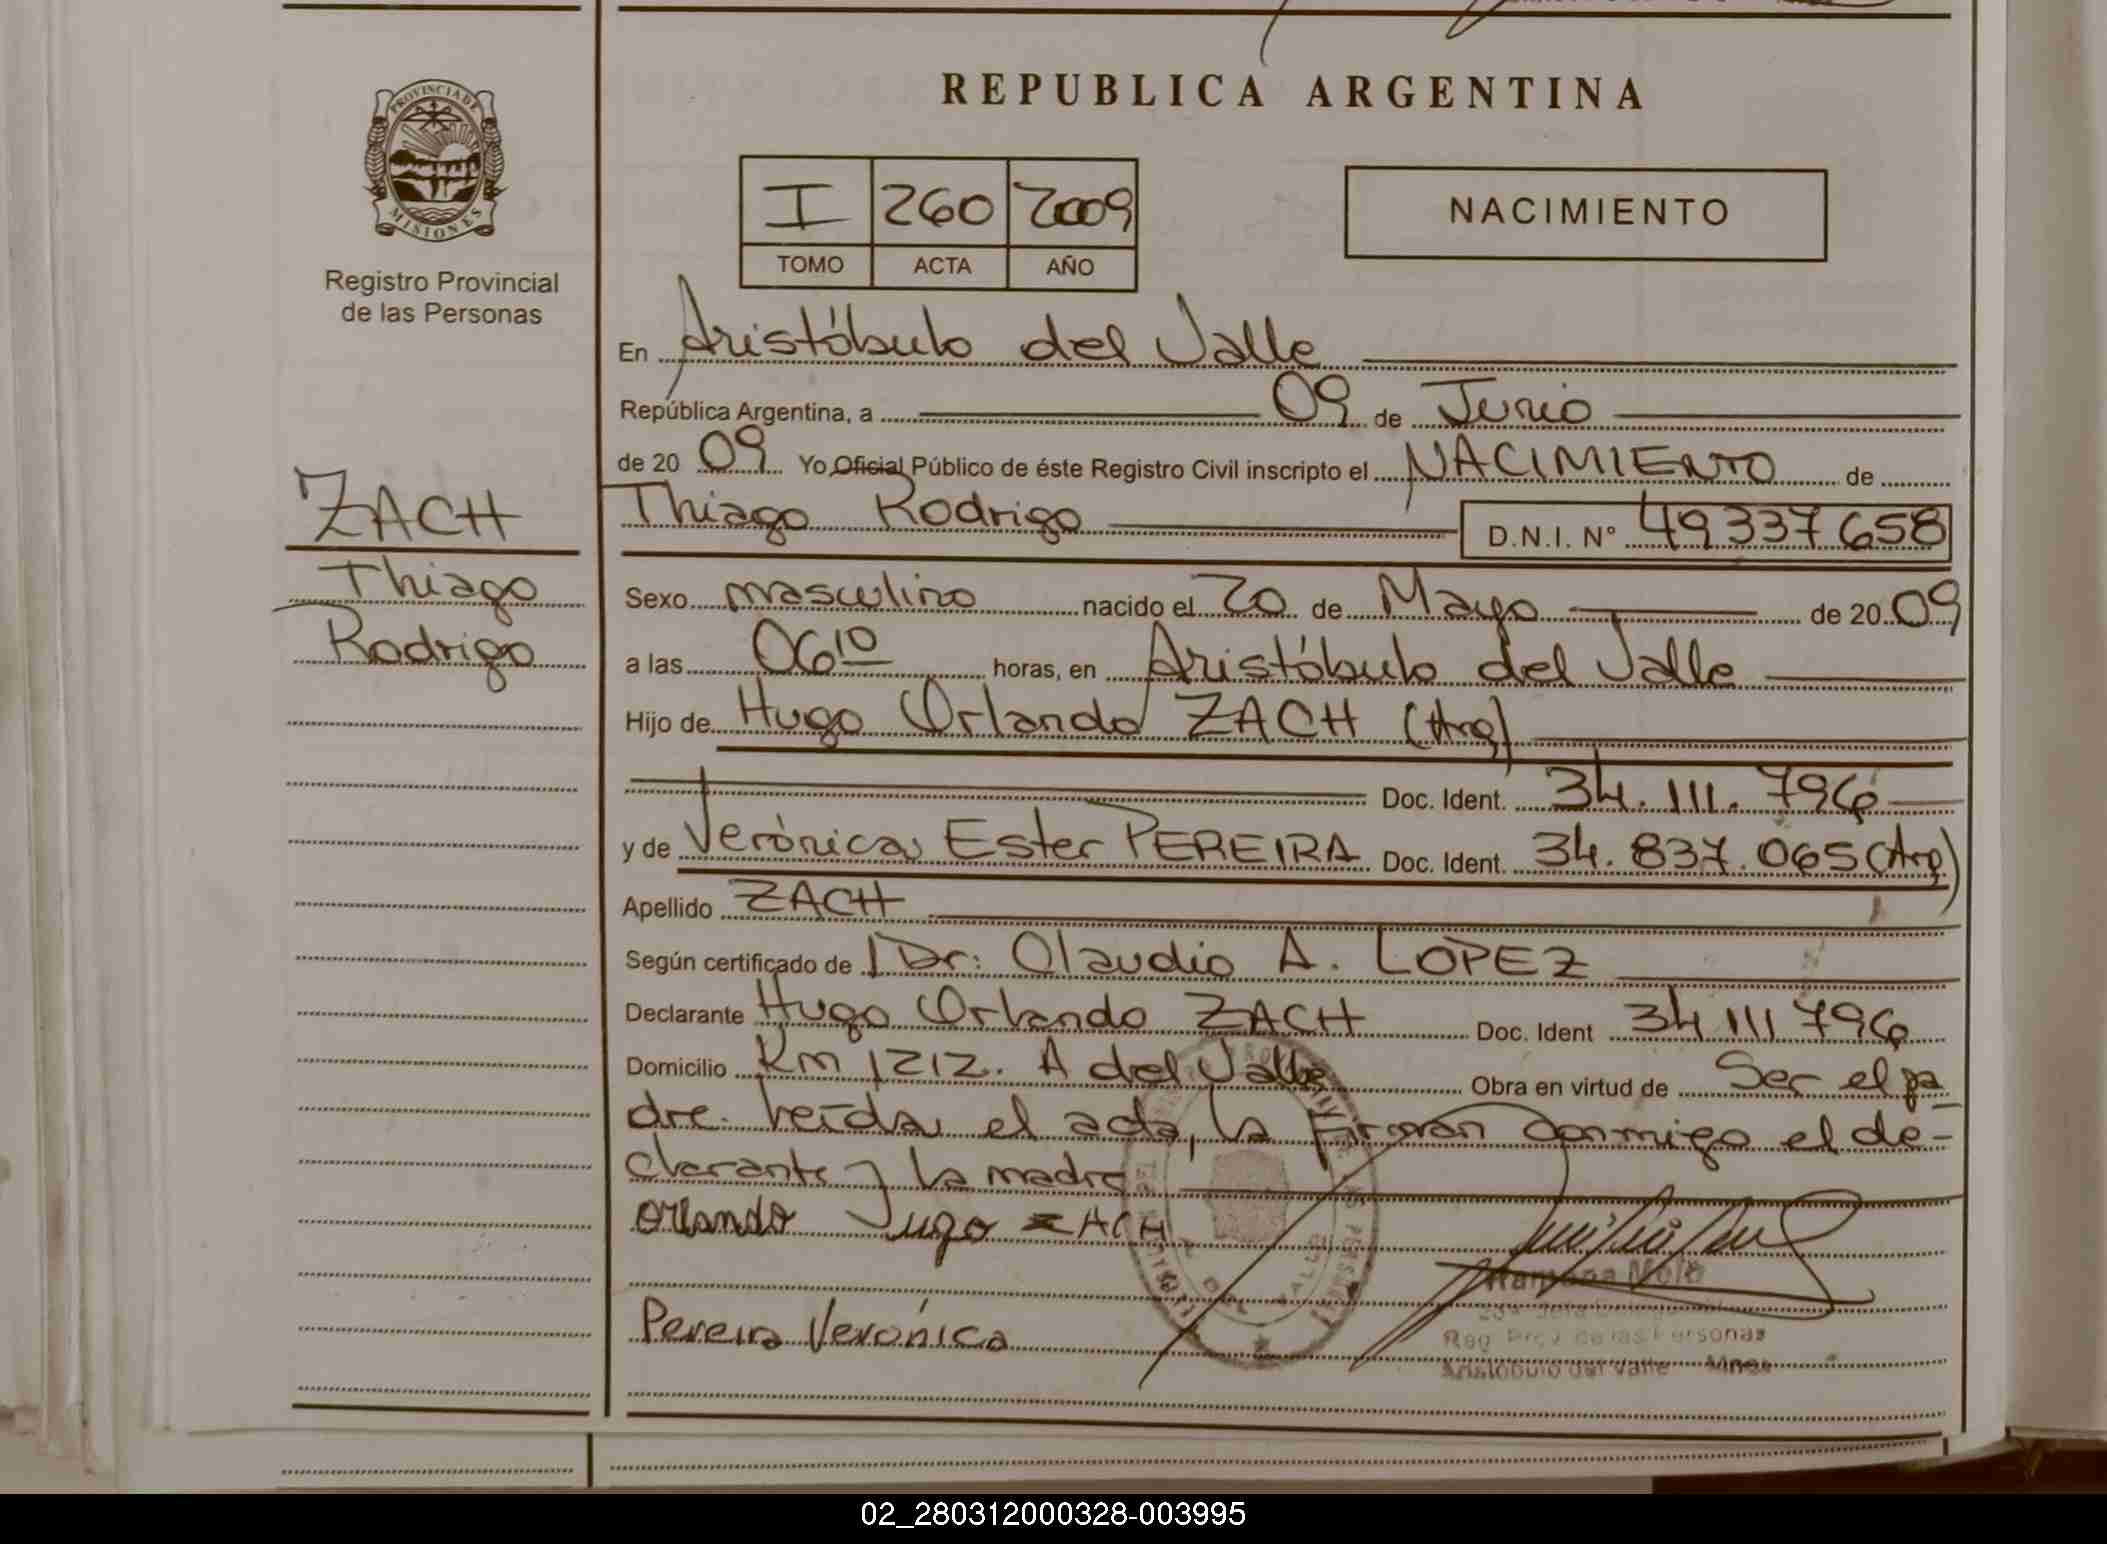 REPUBLICA ARGENTINA
PROVINCIA DE
MISIONES
Registro Provincial
de las Personas
I 260 2009
TOMO ACTA AÑO
NACIMIENTO
ZACH
Thiago
Rodrigo
En Aristóbulo del Valle
República Argentina, a 09 de Junio
de 20 09 Yo Oficial Público de éste Registro Civil inscripto el NACIMIENTO de
Thiago Rodrigo D.N.I. Nº 49337658
Sexo masculino nacido el 20 de Mayo de 20 09
a las 06 10 horas, en Aristóbulo del Valle
Hijo de Hugo Orlando ZACH (Arg)
Doc. Ident. 34.111.796
y de Verónica Ester PEREIRA Doc. Ident. 34.837.065 (Arg)
Apellido ZACH
Según certificado de Dr: Claudio A. LOPEZ
Declarante Hugo Orlando ZACH Doc. Ident 34 111 796
Domicilio Km 1212. A del Valle Obra en virtud de Ser el pa
dre. Leída el acta, la firman conmigo el de-
clarante y la madre
orlando Jugo ZACH
Ramona
Reg. Prov. de las Personas
Aristóbulo del Valle Mnes
Pereira Verónica
02_280312000328-003995